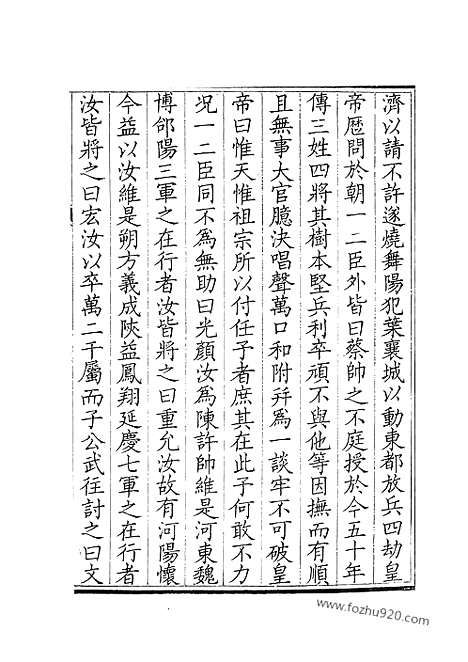 濟以請不許遂燒舞陽犯葉襄城以動東都放兵四劫皇
帝歴問於朝一二臣外皆曰蔡帥之不庭授於今五十年
傳三姓四將其樹本堅兵利卒頑不與他等因撫而有順
且無事大官臆決唱聲萬口和附并為一談牢不可破皇
帝曰惟天惟祖宗所以付任予者庶其在此予何敢不力
况一二臣同不為無助曰光顔汝為陳許帥維是河東魏
博郃陽三軍之在行者汝皆將之曰重允汝故有河陽懷
今益以汝維是朔方義成陜益鳳翔延慶七軍之在行者
汝皆將之曰宏汝以卒萬二千屬而子公武往討之曰文
www.fozhu920.com